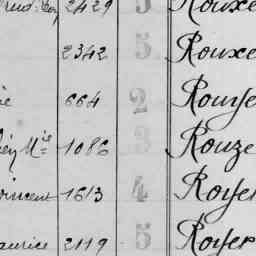 2429 5 Rouxe
2342 5 Rouxe
664 2
1086 3 Rouze
incent 1613 4 Royer
aurice 2119 5 Royer